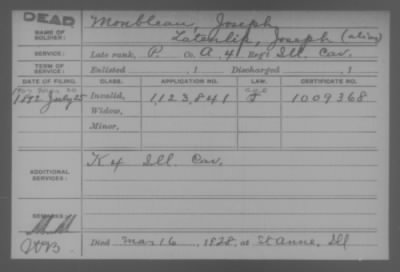 DEAD
NAME OF SOLDIER: Monbleau, Joseph
Latenlip, Joseph (alias)
SERVICE: Late rank, P. Co. A, 4 Reg't Ill. Cav.
TERM OF SERVICE: Enlisted , 1 Discharged , 1
DATE OF FILING. CLASS. APPLICATION NO. LAW. CERTIFICATE NO.
1892 July 25 Invalid, 1,123,841 J 1009368
Widow,
Minor,
ADDITIONAL SERVICES: K 4 Ill. Cav.
REMARKS:
Died Mar 16, 1928, at St Anne, Ill